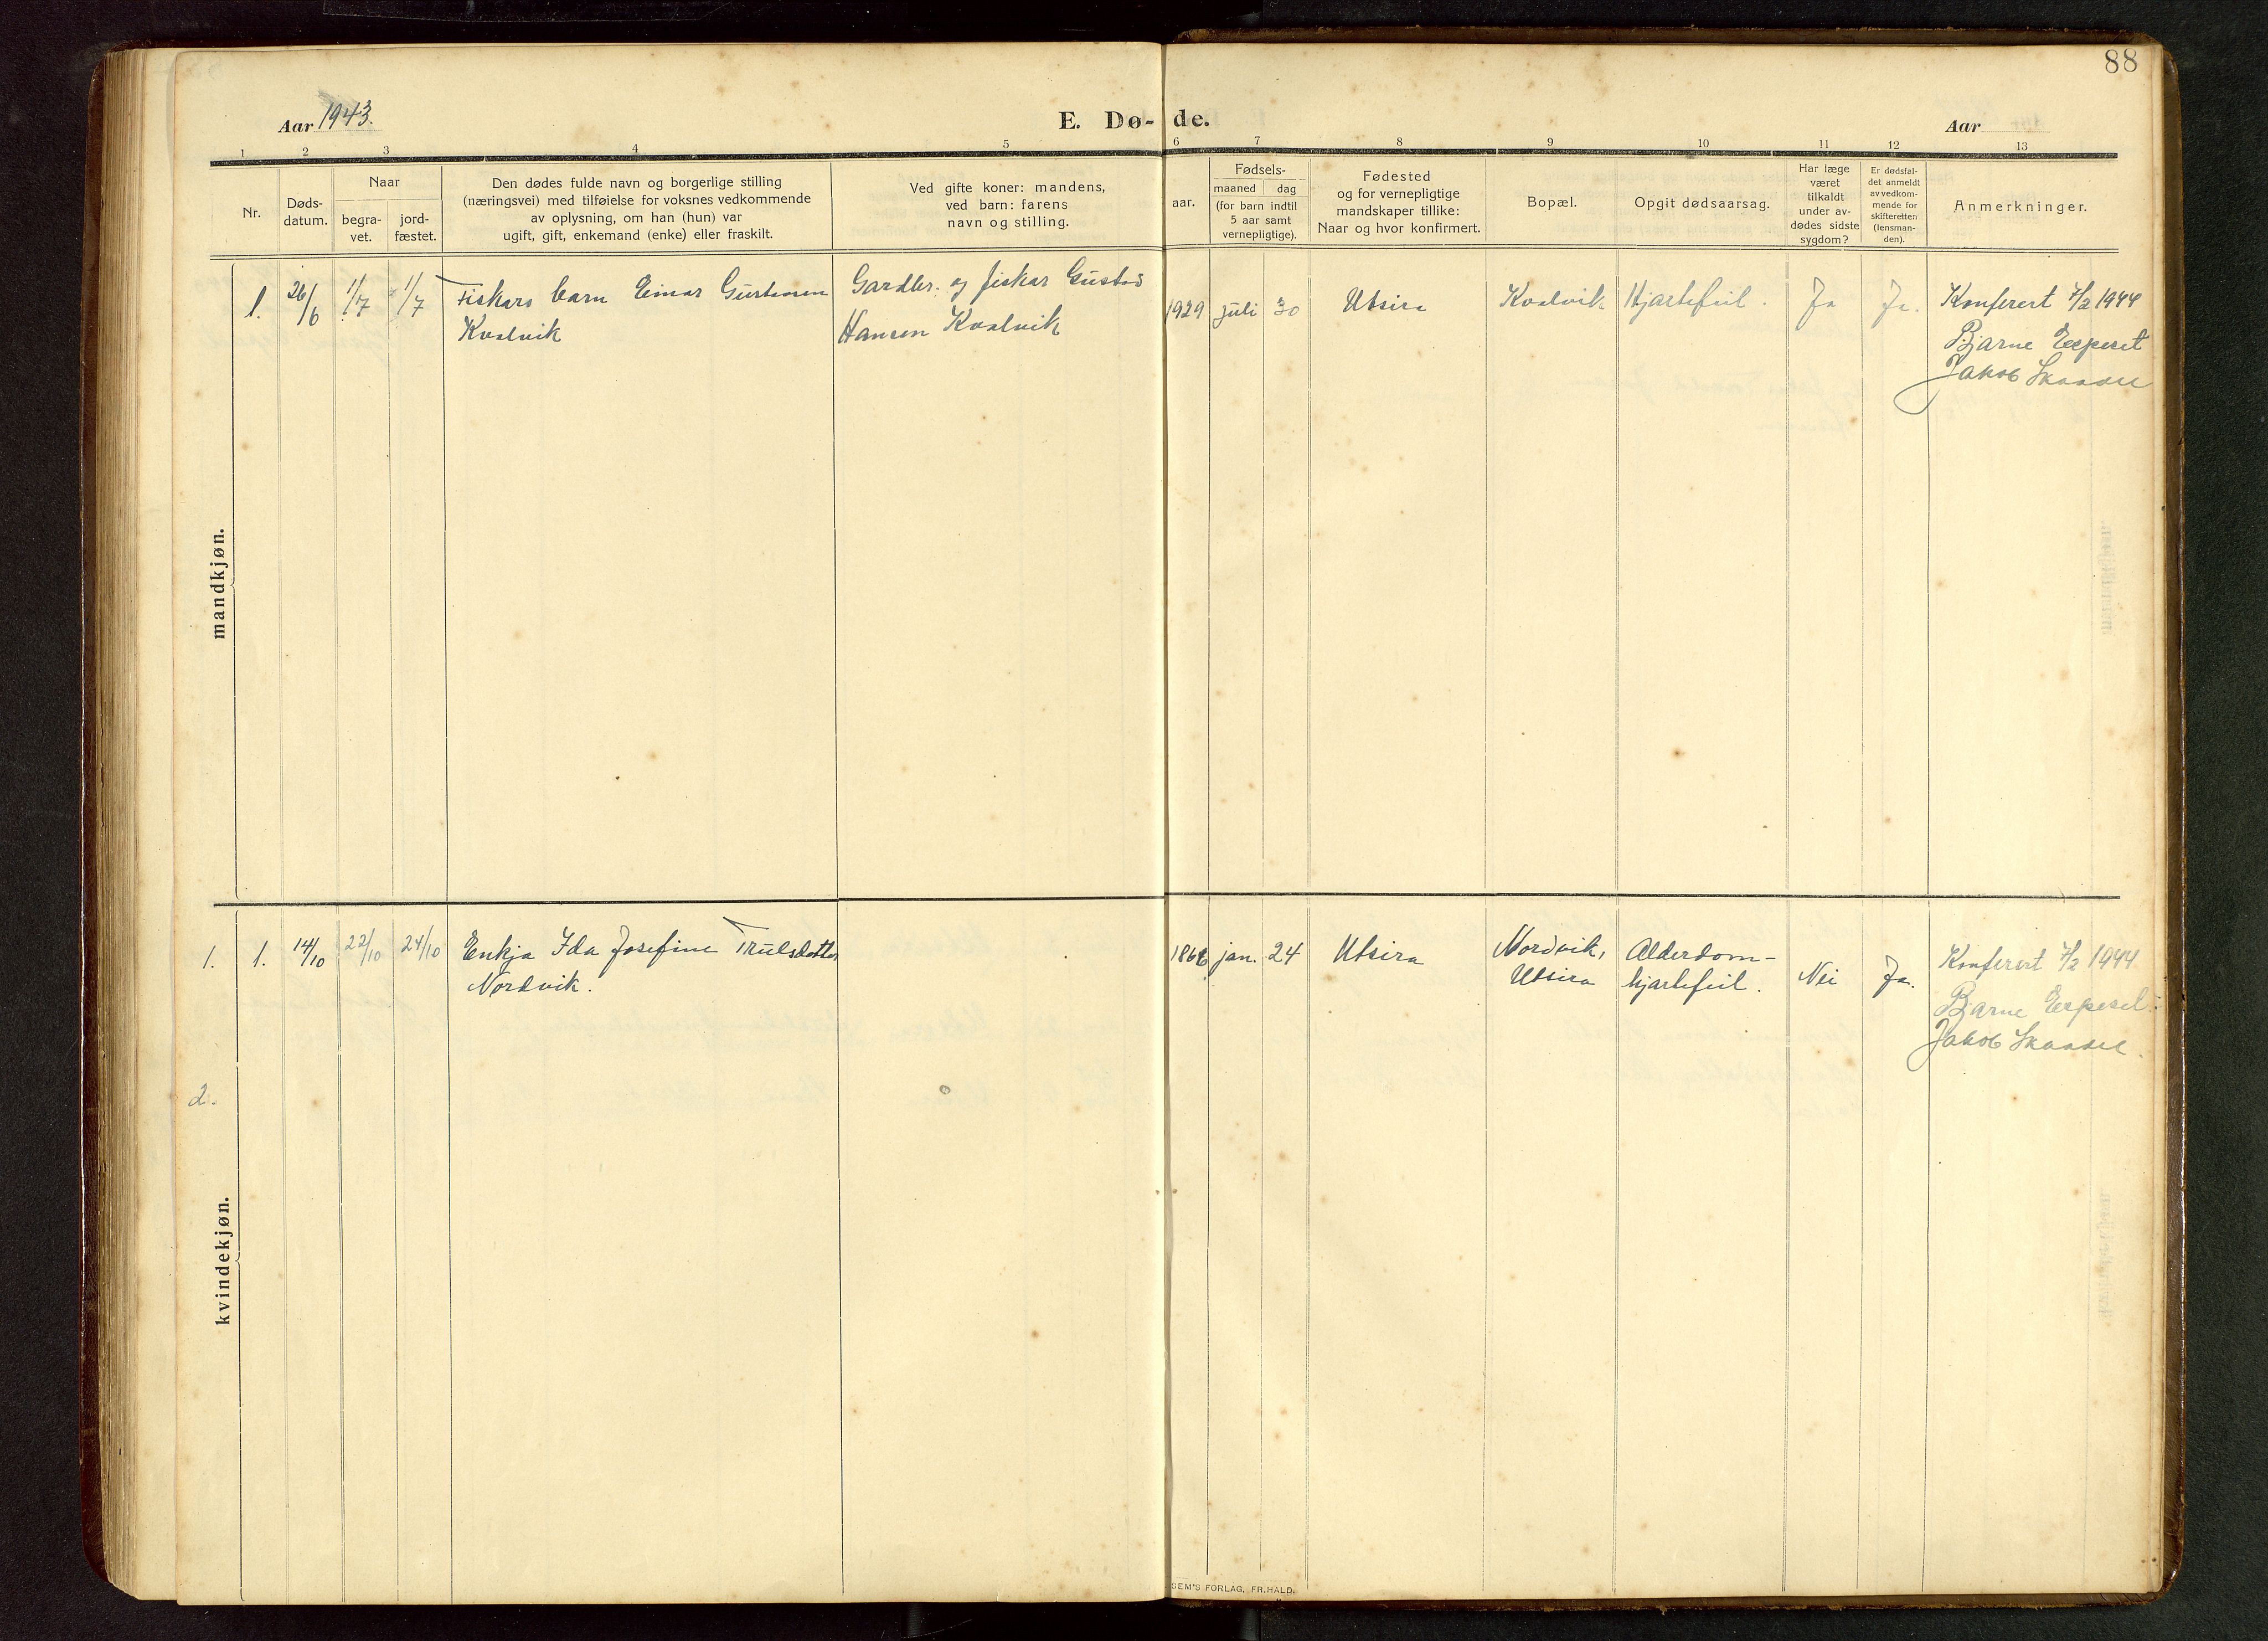 88
Aar 1943.
E. Dø- de.
Aar
1 2 3 4 5 6 7 8 9 10 11 12 13
Nr.
Døds-
datum.
Naar
begra-
vet.
jord-
fæstet.
Den dødes fulde navn og borgerlige stilling
(næringsvei) med tilføielse for voksnes vedkommende
av oplysning, om han (hun) var
ugift, gift, enkemand (enke) eller fraskilt.
Ved gifte koner: mandens,
ved barn: farens
navn og stilling.
Fødsels-
aar.
maaned dag
(for barn indtil
5 aar samt
vernepligtige).
Fødested
og for vernepligtige
mandskaper tillike:
Naar og hvor konfirmert.
Bopæl.
Opgit dødsaarsag.
Har læge
været
tilkaldt
under av-
dødes sidste
sygdom?
Er dødsfal-
det anmeldt
av vedkom-
mende for
skifteretten
(lensman-
den).
Anmerkninger.
mandkjøn.
1. 26/6 1/7 1/7 Fiskars barn Einar Gustavsen Gardbr. og fiskar Gustav 1929 juli 30 Utsira Kvalvik Hjartefeil. Ja Ja. Konferert 7/2 1944
Kvalvik Hansen Kvalvik Bjarne Espeset
Jakob Skaadel
kvindekjøn.
1. 1. 14/10 22/10 24/10 Enkja Ida Josefine Trulsdotter jan. 24 Utsira Nordvik, Alderdom- Nei Ja. Konferert 7/2 1944
Nordvik. Utsira hjartefeil. Bjarne Espeset
Jakob Skaadel.
2.
SEM'S FORLAG, FR. HALD.